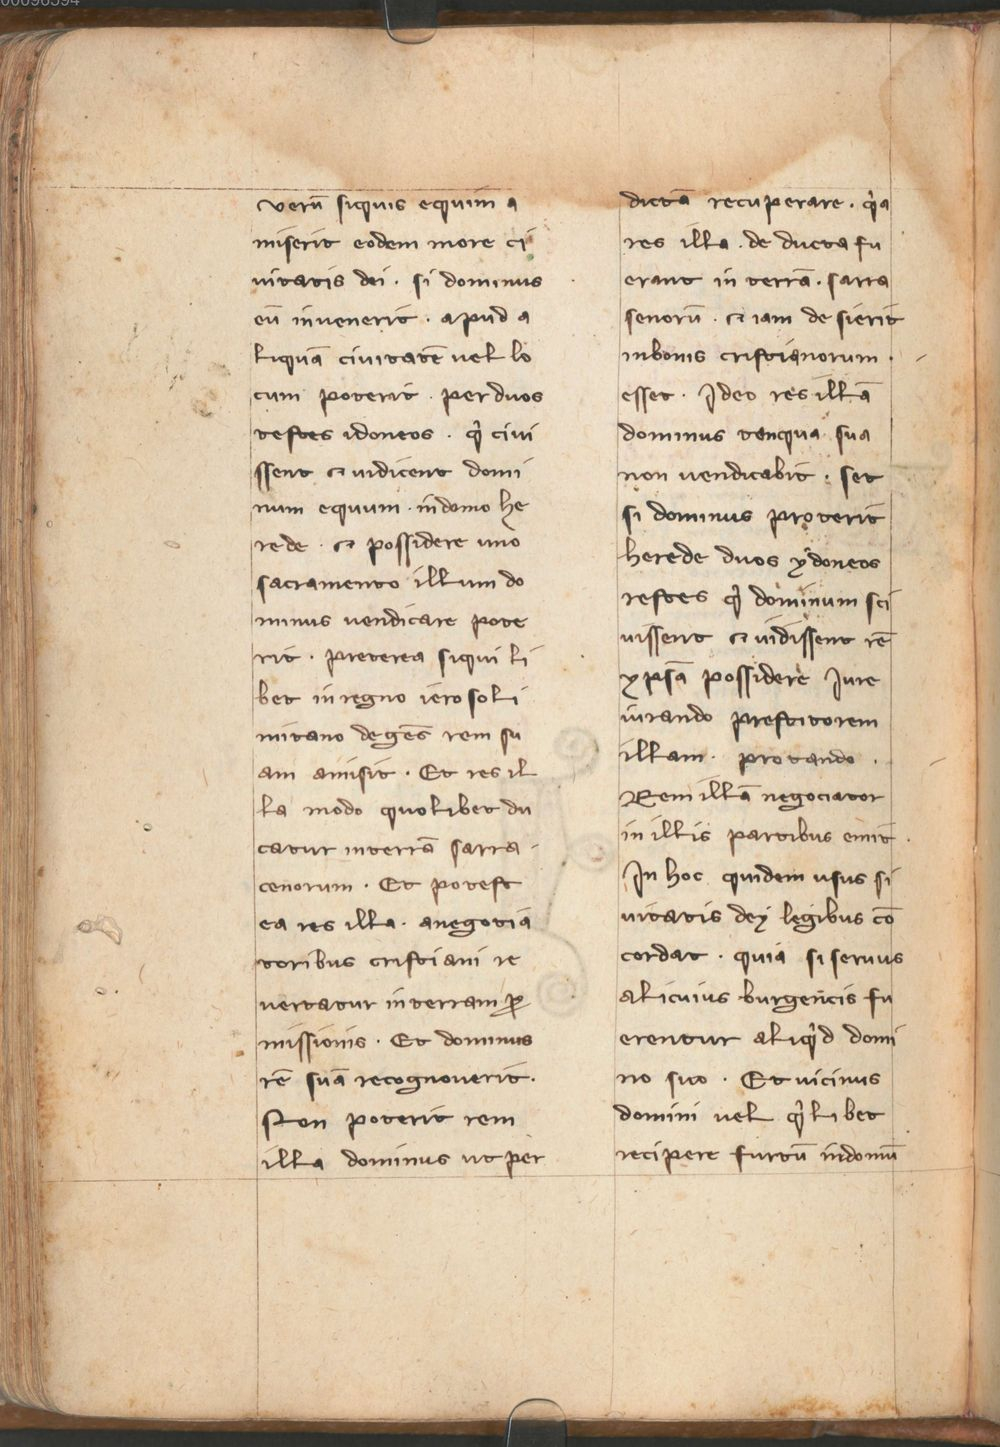 00096594
verū siquis equum a
miserit eodem more ci
uitatis dei . si dominus
eū inuenerit . apud a
liquā ciuitatē uel lo
cum poterit . per duos
testes idoneos . q̄ ciui
ssent et uidicent domi
num equum . in domo he
rede . et possidere uno
sacramento illum do
minus uendicare pote
rit . preterea siqui li
bet in regno ierosoli
mitano degēs rem su
am amisit . Et res il
la modo quolibet du
catur in terrā sarra
cenorum . Et potest
ea res illa . a negotia
toribus cristiani re
uertatur in terram ꝓ
missionis . Et dominus
rē suā recognouerit .
Non poterit rem
illa dominus ut per
dictā recuperare . q̇a
res illa . de ducta fu
erant in terrā . sarra
senorū . et iam desierit
in bonis cristianorum .
esset . Ideo res illā
dominus tanqua sua
non uendicabit . set
si dominus proterit
herede duos ydoneos
restes q̄ dominum sci
uissent et uidissent rē
ypsā possidere Iure
iurando prestitorem
illam . protando .
Rem illā negociator
in illis partibus emit .
In hoc quidem usus si
uitatis dey legibus cō
cordat . quia si seruus
alicuius burgencis fu
erentur aliq̇d domi
no suo . Et uicinus
domini uel q̇libet
recipere furtū in domū